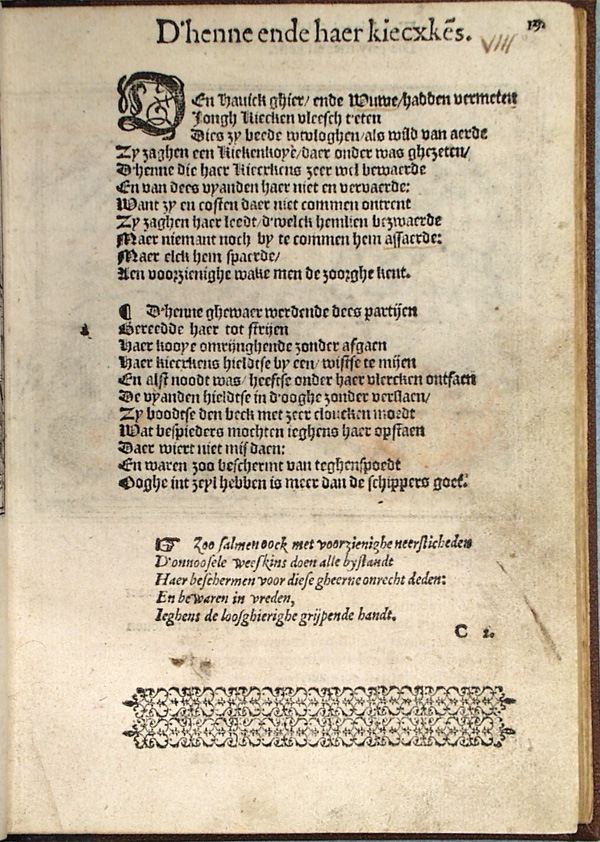 D'henne ende haer kiecxkēs.
VIII
DEn Hauick ghier/ ende Wuwe/hadden vermeten
Jongh Kiecken vleesch t'eten
Dies zy beede wtvloghen/als wild van aerde
Zy zaghen een Kiekenkoye/daer onder was ghezeten/
D'henne die haer Kieckens zeer wel bewaerde
En van dees vyanden haer niet en vervaerde:
Want zy en costen daer niet commen ontrent
Zy zaghen haer leedt/d'welck hemlien bezwaerde
Maer niemant noch by te commen hem assaerde:
Maer elck hem spaerde/
Aen voorzienighe wake men de zoorghe kent.
¶ D'henne ghewaer werdende dees partijen
Gereedde haer tot strijen
Haer kooye omrijnghende zonder afgaen
Haer kieckens hieldtse by een/ wistse te mijen
En alst noodt was/ heeftse onder haer vlercken ontfaen
De vyanden hieldtse in d'ooghe zonder verslaen/
Zy boodtse den beck met zeer cloucken moedt
Wat bespieders mochten ieghens haer opstaen
Daer wiert niet mis daen:
En waren zoo beschermt van teghenspoedt
Ooghe int zeyl hebben is meer dan de schippers goet.
☞ Zoo salmen oock met voorzienighe neersticheden
D'onnoosele weeskins doen alle bystandt
Haer beschermen voor diese gheerne onrecht deden:
En bewaren in vreden,
Ieghens de loosghierighe grijpende handt.
C 2.